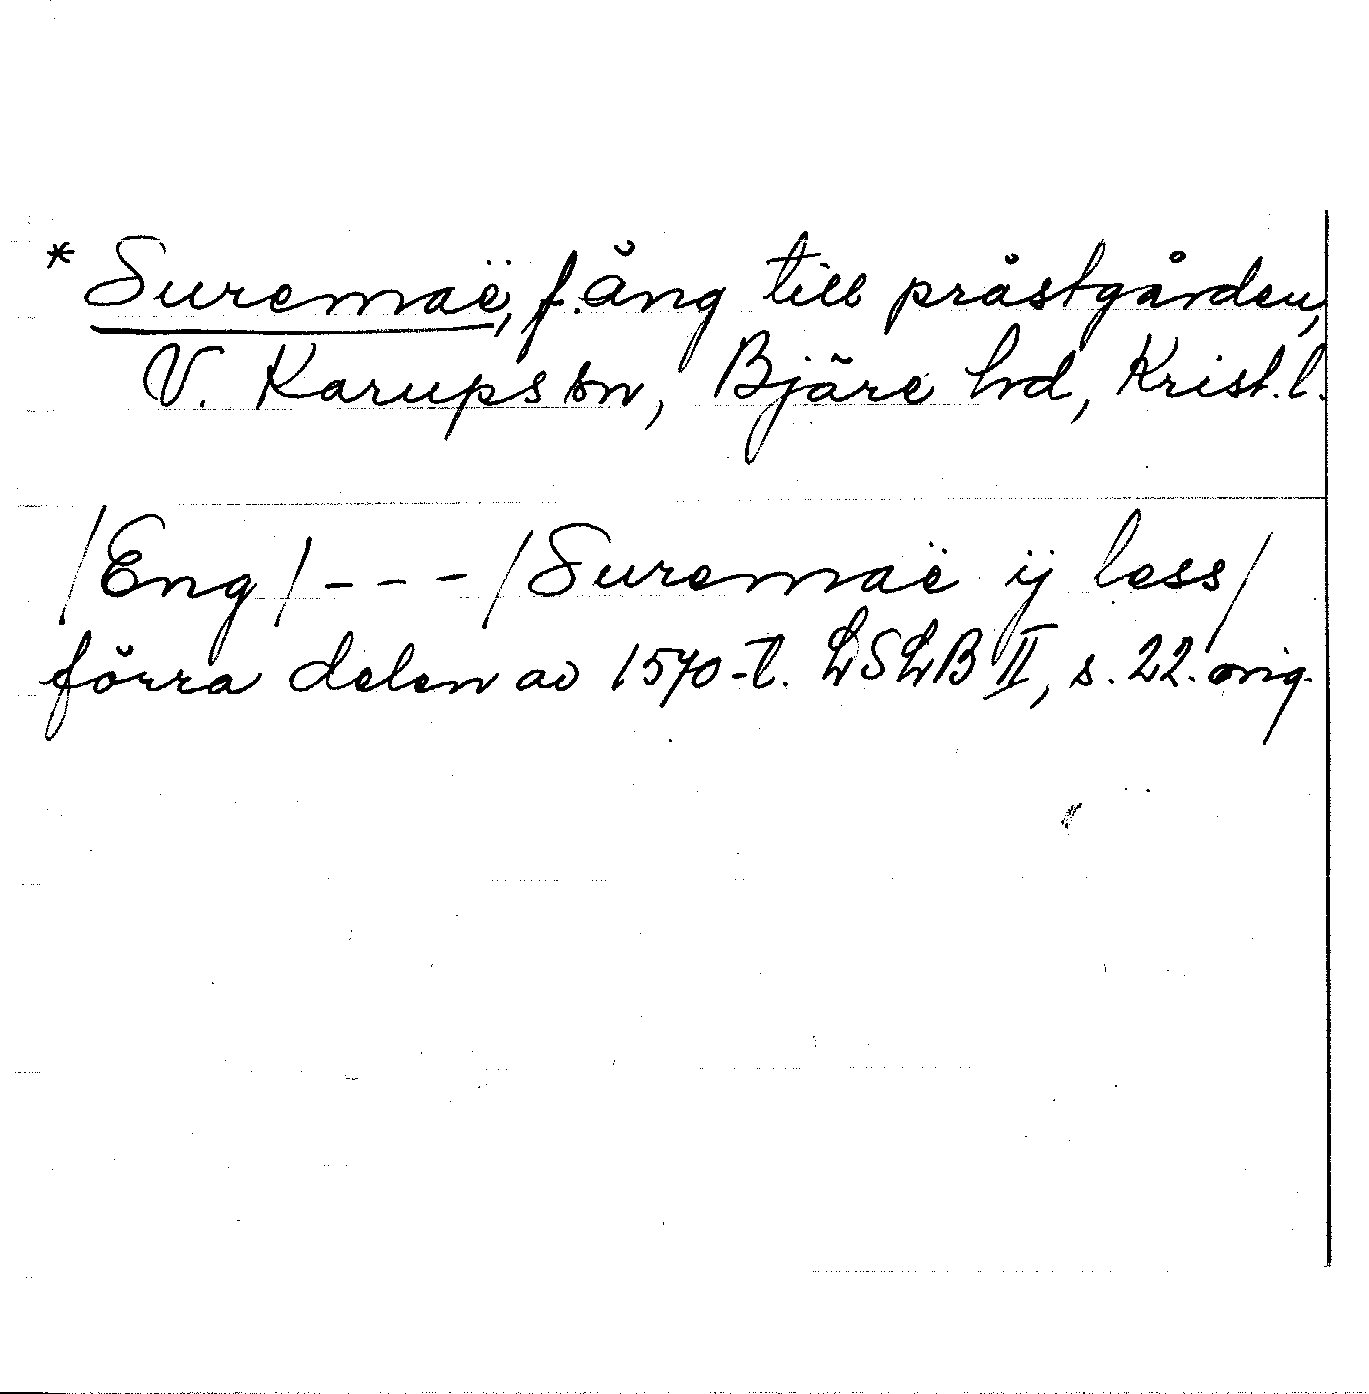 * Suremaë, f. äng till prästgården,
V. Karups sn, Bjäre hd, Krist. l.
/Eng/ - - - /Suremaë ij less/
förra delen av 1570-t. LSLB II, s. 22. orig.